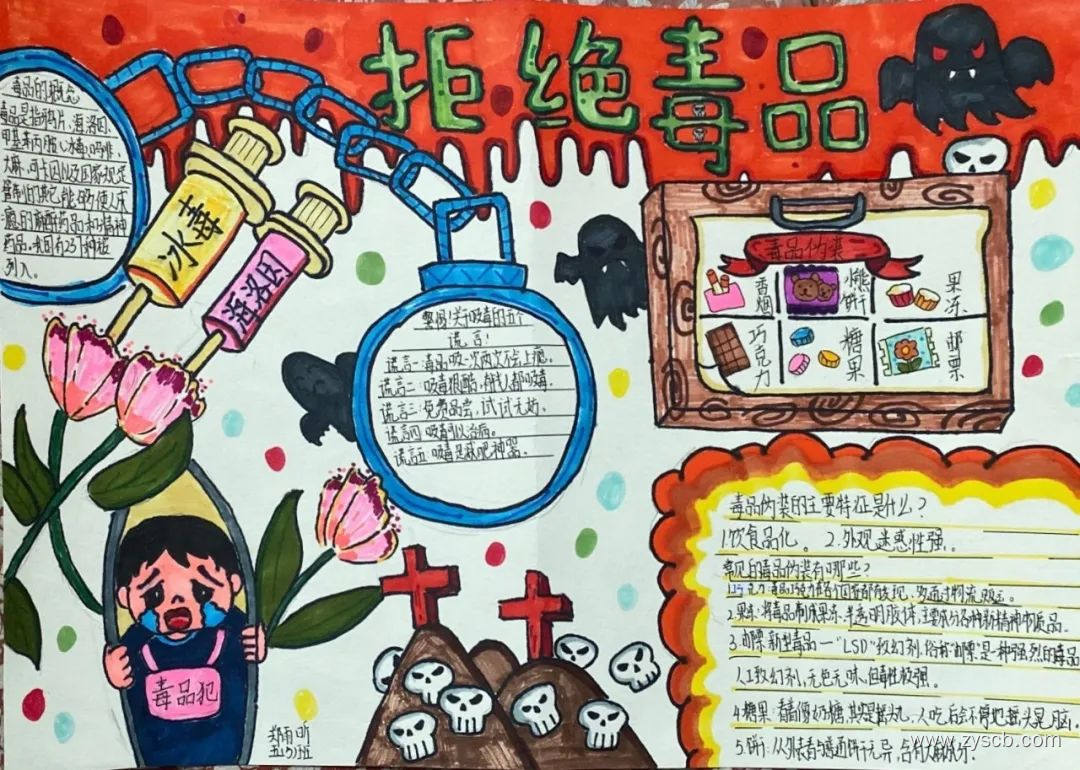 拒绝毒品
毒品的概念
毒品是指鸦片、海洛因、
甲基苯丙胺(冰毒)、吗啡、
大麻、可卡因以及国家规定
管制的其它能够使人成
瘾的麻醉药品和精神
药品。我国有237种被
列入。
冰毒
海洛因
警惕!关于吸毒的五个
谎言!
谎言一:毒品吸一次两次不会上瘾。
谎言二:吸毒很酷,有钱人都吸毒。
谎言三:免费品尝,试试无妨。
谎言四:吸毒可以治病。
谎言五:吸毒是减肥神器。
毒品伪装
香烟
熊饼干
果冻
巧克力
糖果
邮票
毒品伪装的主要特征是什么?
1.饮食品化。 2.外观迷惑性强。
常见的毒品伪装有哪些?
1.巧克力:毒品巧克力在各个国家都有发现,多通过物流
2.果冻:将毒品制成果冻,半透明胶体,主要成分各种新精神
3.邮票:新型毒品一"LSD"致幻剂,俗称"邮票"是一种强烈的毒品
人工致幻剂,无色无味,但毒性极强。
4.糖果:看着像奶糖,其实是摇头丸,人吃后会不停地摇头晃脑。
5.饼干:从外表看与普通饼干无异,含有大麻成分。
毒品犯
郑雨昕
五(3)班
www.zyscb.com